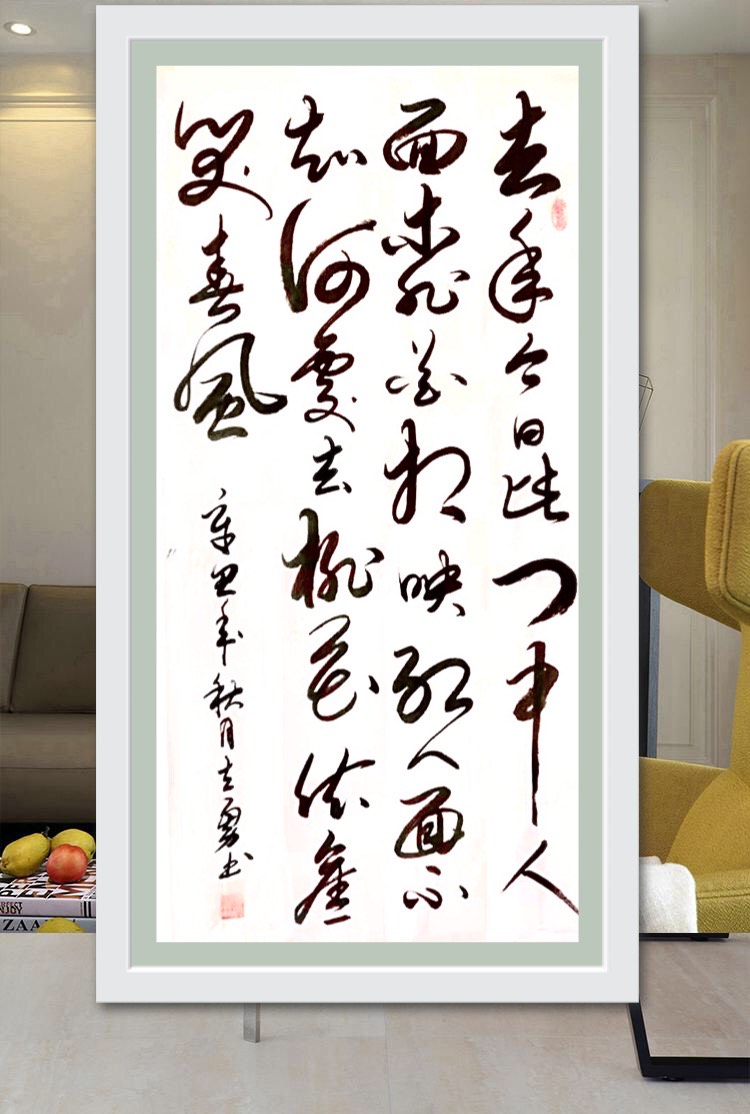 去年今日此门中人
面桃花相映红人面不
知何處去桃花依舊
笑春風
辛丑年秋月勇书
ERFECT
NJOY
ZAA